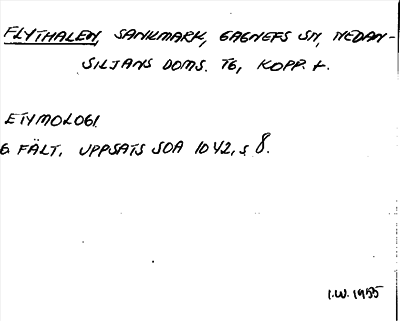 FLYTHALEN, SANKMARK, GAGNEFS SN, NEDAN-
SILJANS DOMS. TG, KOPP. L.
ETYMOLOGI
G FÄLT, UPPSATS SOA 1042, S 8.
I.W. 1955